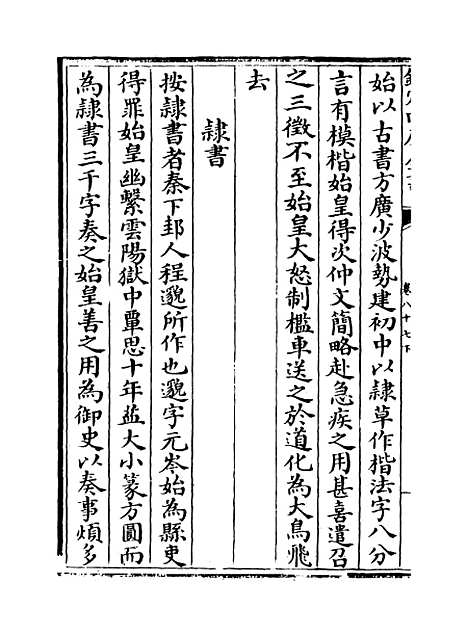 始以古書方廣少波勢建初中以隸草作楷法字八分
言有模楷始皇得次仲文簡略赴急疾之用甚喜遣召
之三徵不至始皇大怒制檻車送之於道化為大鳥飛
去
隸書
按隸書者秦下邽人程邈所作也邈字元岑始為縣吏
得罪始皇幽繫雲陽獄中覃思十年益大小篆方圓而
為隸書三千字奏之始皇善之用為御史以奏事煩多
卷八十七下